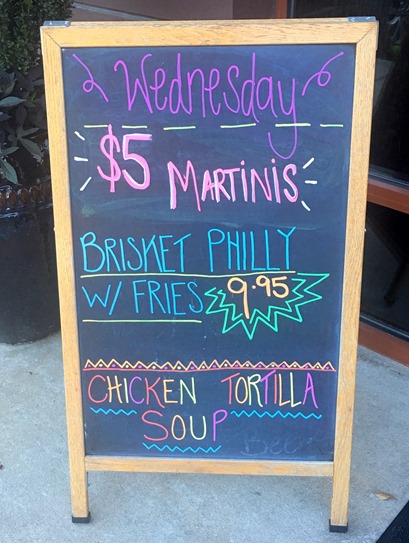 Wednesday
$5 MARTINIS
BRISKET PHILLY
W/ FRIES 9.95
CHICKEN TORTILLA
SOUP
Beer